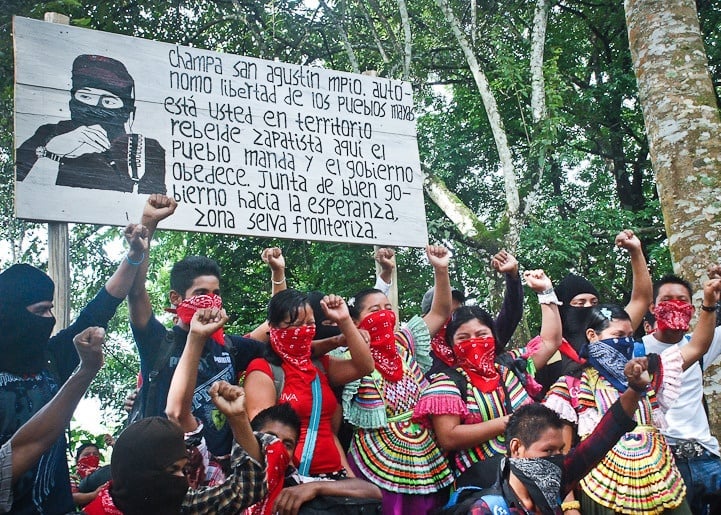 champa san agustín mpio. autó
nomo libertad de los pueblos mayas
está usted en territorio
rebelde zapatista aquí el
pueblo manda y el gobierno
obedece. junta de buen go-
bierno hacia la esperanza,
zona selva fronteriza.